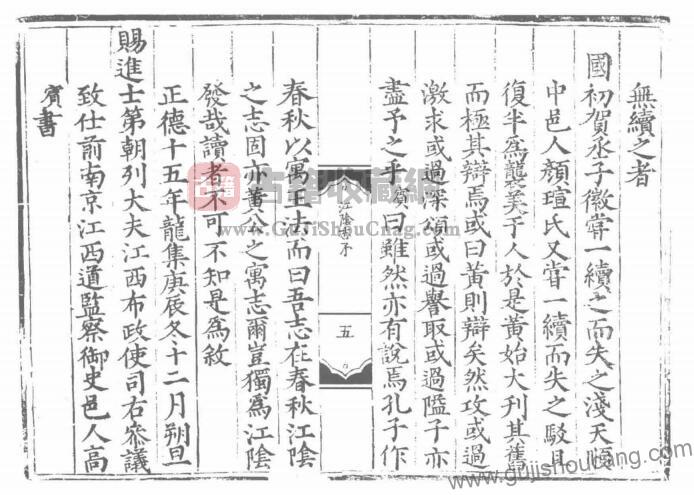 無續之者
國初賀丞子徽嘗一續之而失之淺天順
中邑人顏瑄氏又嘗一續而失之駁且
復半為襲美子人於是黃始大刊其舊
而極其辯焉或曰黃則辯矣然攻或過
激求或過深頌或過譽取或過隘子亦
盡予之乎賓曰雖然亦有說焉孔子作
江陰縣序
五
春秋以寓王法而曰吾志在春秋江陰
之志固亦黃公之寓志爾豈獨為江陰
發哉讀者不可不知是為敘
正德十五年龍集庚辰冬十二月朔旦
賜進士第朝列大夫江西布政使司右參議
致仕前南京江西道監察御史邑人高
賓書
古籍收藏網
www.GuJiShouCang.com
www.gujishoucang.com